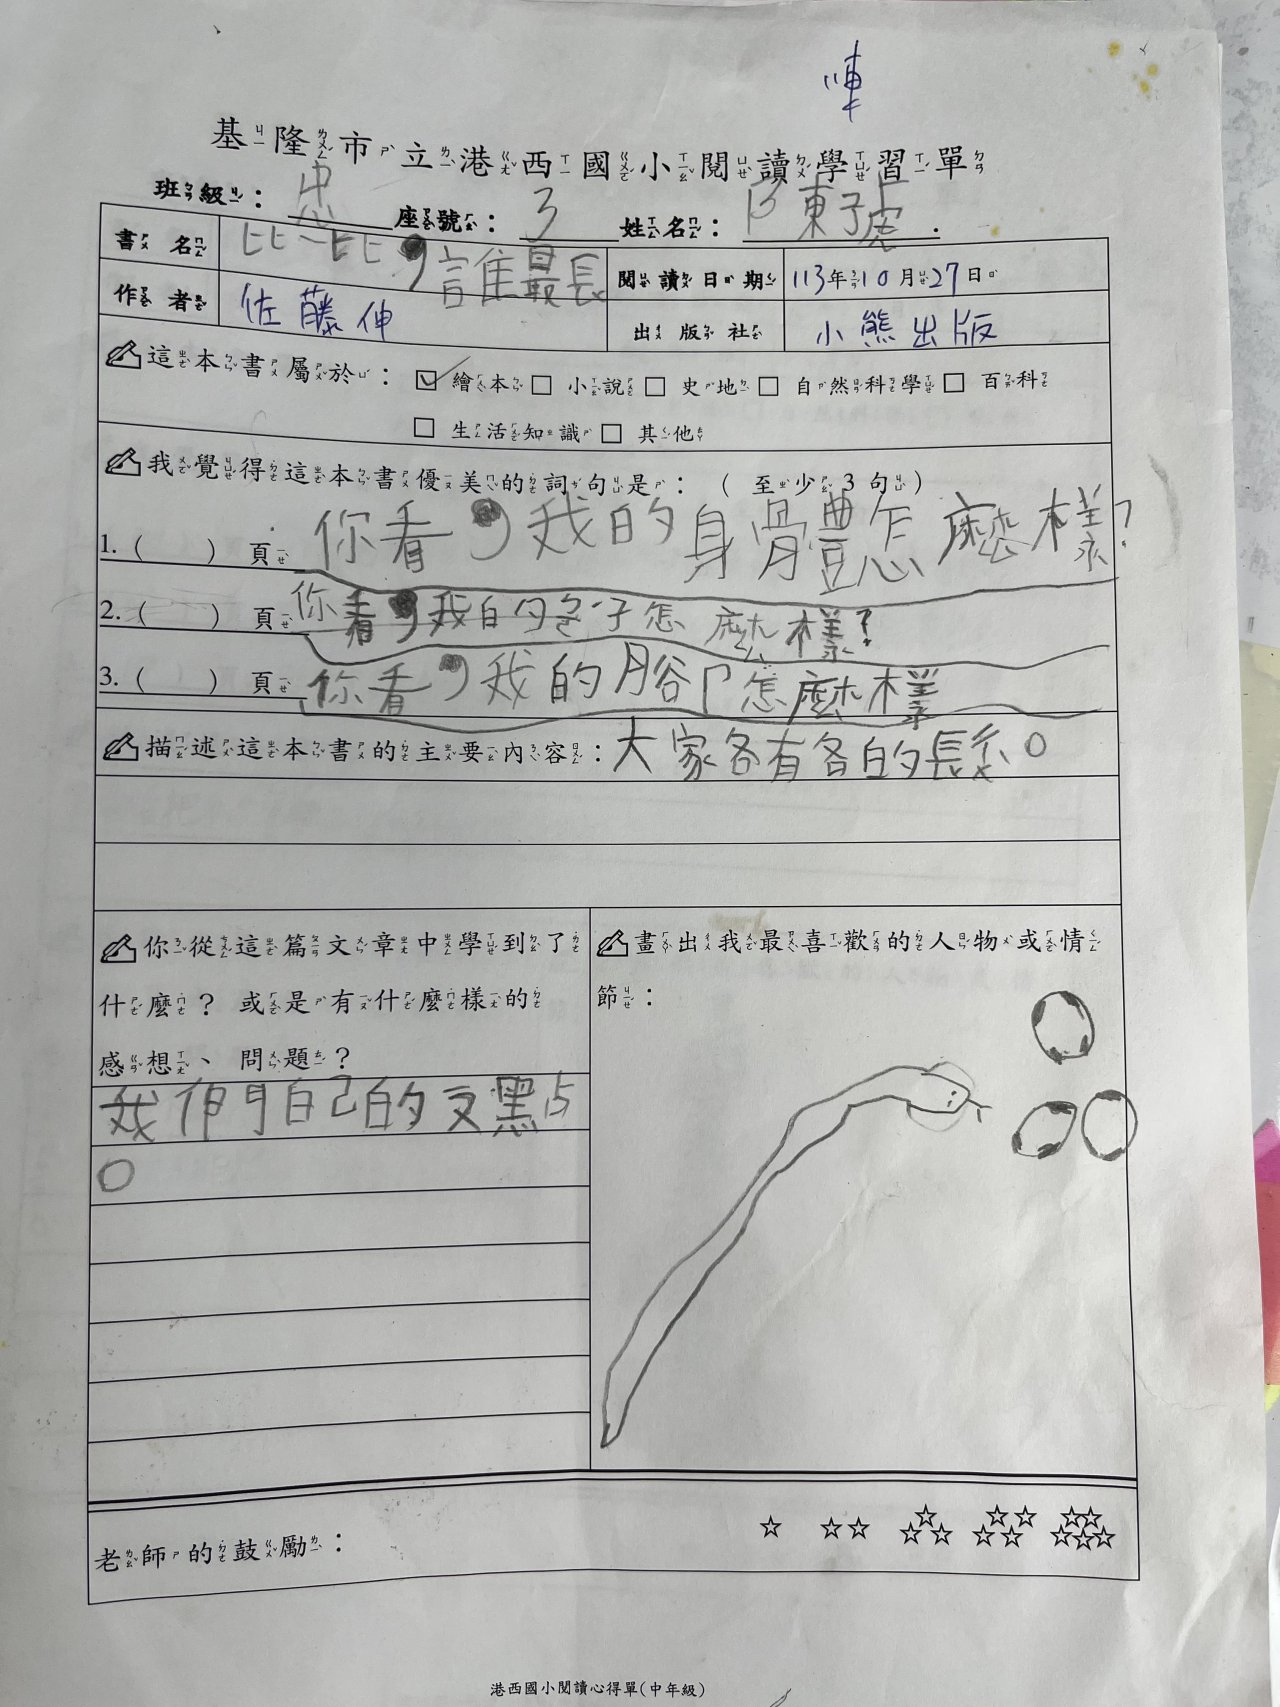 基隆市立港西國小閱讀學習單
班級：忠 座號：3 姓名：陳子虎
書名 比一比，誰最長
閱讀日期 113年10月27日
作者 佐藤伸
出版社 小熊出版
這本書屬於：☑ 繪本 □ 小說 □ 史地 □ 自然科學 □ 百科
□ 生活知識 □ 其他
我覺得這本書優美的詞句是：（至少3句）
1.（ ）頁 你看，我的身體怎麼樣？
2.（ ）頁 你看，我的包子怎麼樣？
3.（ ）頁 你看，我的腳怎麼樣
描述這本書的主要內容：大家各有各的長。
你從這篇文章中學到了
什麼？或是有什麼樣的
感想、問題？
我們自己的又點
。
畫出我最喜歡的人物或情
節：
老師的鼓勵： ☆ ☆☆ ☆☆☆ ☆☆☆☆ ☆☆☆☆☆
港西國小閱讀心得單(中年級)